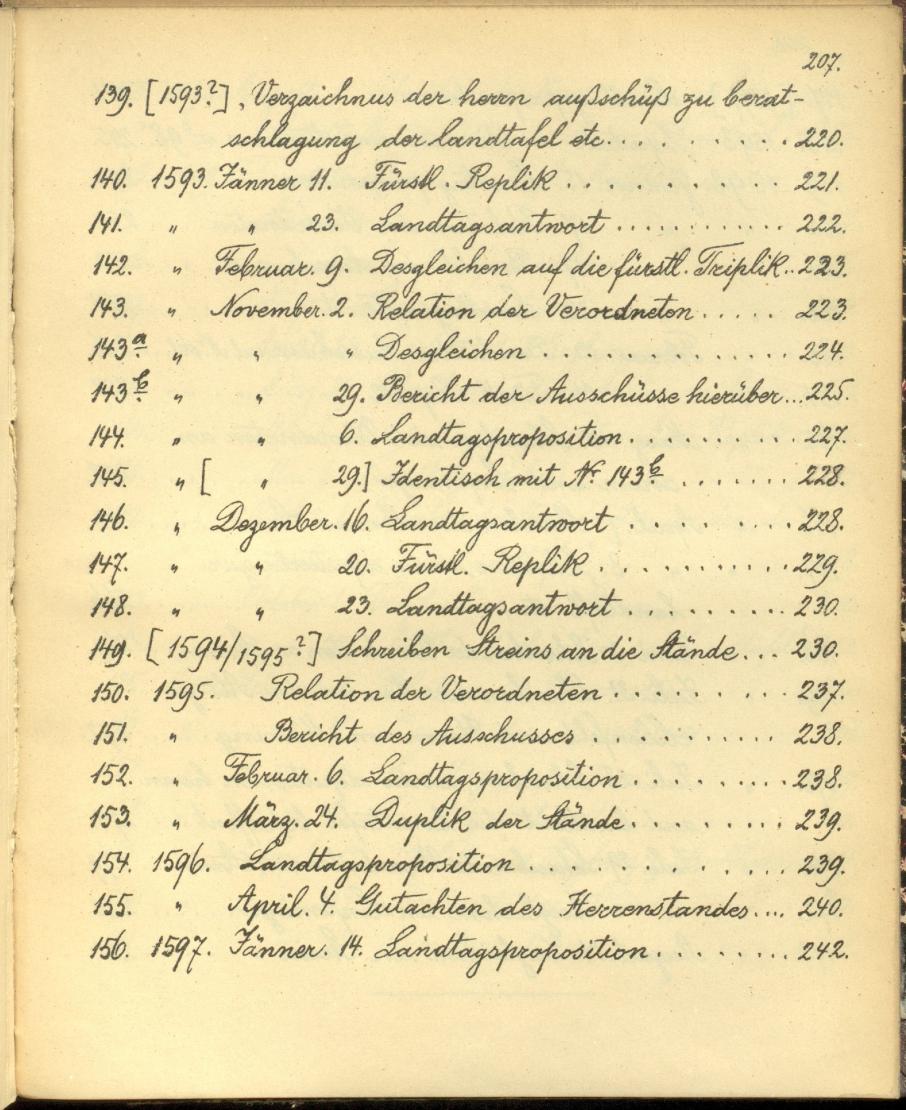 207.
139. [1593?] „Verzaichnus der herrn außschüß zu berat-
schlagung der landtafel etc. . . . . . . . . . . 220.
140. 1593. Jänner 11. Fürstl. Replik . . . . . . . . . . . 221.
141. " " 23. Landtagsantwort . . . . . . . . . . . 222.
142. " Februar. 9. Desgleichen auf die fürstl. Triplik. . 223.
143. " November. 2. Relation der Verordneten . . . . . 223.
143a " " " Desgleichen . . . . . . . . . . . . . 224.
143b " " 29. Bericht der Ausschüsse hierüber . . . 225.
144. " " 6. Landtagsproposition . . . . . . . . . 227.
145. " [ " 29.] Identisch mit No. 143b . . . . . . . 228.
146. " Dezember. 16. Landtagsantwort . . . . . . . . 228.
147. " " 20. Fürstl. Replik . . . . . . . . . . 229.
148. " " 23. Landtagsantwort . . . . . . . . 230.
149. [1594/1595?] Schreiben Streins an die Stände . . . 230.
150. 1595. Relation der Verordneten . . . . . . . . . 237.
151. " Bericht des Ausschusses . . . . . . . . . . 238.
152. " Februar. 6. Landtagsproposition . . . . . . . . . 238.
153. " März. 24. Duplik der Stände . . . . . . . . . 239.
154. 1596. Landtagsproposition . . . . . . . . . . . . . 239.
155. " April. 4. Gutachten des Herrenstandes . . . . 240.
156. 1597. Jänner. 14. Landtagsproposition . . . . . . . . 242.